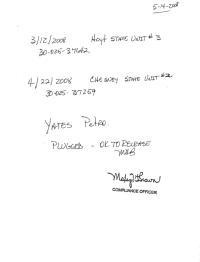 5-14-2008
3/12/2008 Hoyt STATE UNIT # 3
30-025-37642
4/22/2008 CHESNEY STATE UNIT #2
30-025-37259
YATES Petro.
PLUGGED - OK TO RELEASE
MWB
COMPLIANCE OFFICER